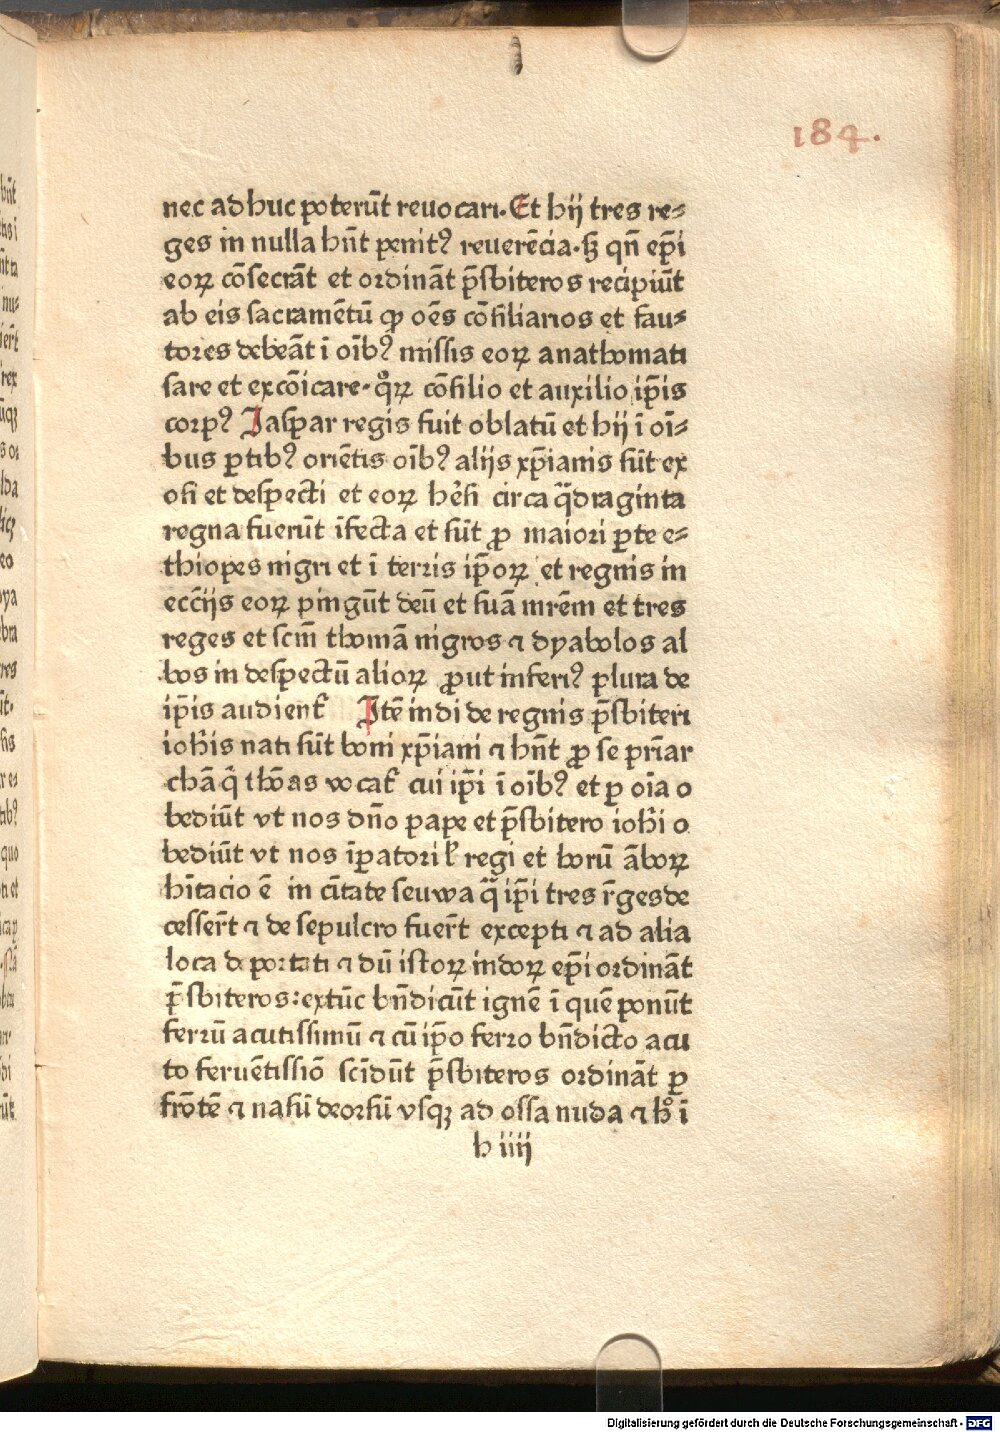 184.
nec adhuc poterūt reuocari. Et hij tres re⸗
ges in nulla hn̄t penitꝰ reuerēcia. sꝫ qn̄ ep̄i
eoꝝ cōsecrāt et ordināt p̄sbiteros recipiūt
ab eis sacramētū ꝙ oēs cōsiliarios et fau⸗
tores debeāt ī oībꝰ missis eoꝝ anathomati
sare et excōicare. qͦꝝ cōsilio et auxilio ip̄is
corpꝰ Jaspar regis fuit oblatū et hij ī oī⸗
bus ꝑtibꝰ oriētis oībꝰ alijs xp̄ianis sūt ex
osi et despecti et eoꝝ hēsi circa qᷓdraginta
regna fuerūt īfecta et sūt ꝓ maiori ꝑte e⸗
thiopes nigri et ī terris ip̄oꝝ et regnis in
ecc̄ijs eoꝝ pingūt deū et suā mr̄em et tres
reges et scm̄ thomā nigros ⁊ dyabolos al
bos in despectū alioꝝ ꝓut inferiꝰ plura de
ip̄is audient᷑ Jtē indi de regnis p̄sbiteri
ioh̄is nati sūt boni xp̄iani ⁊ hn̄t ꝓ se pr̄iar
chā q̄ thōas vocat᷑ cui ip̄i ī oībꝰ et ꝑ oīa o
bediūt vt nos dn̄o pape et p̄sbitero ioh̄i o
bediūt vt nos īꝑatori l̄ regi et horū āboꝝ
hītacio ē in cītate seuwa qᷓ ip̄i tres r̄ges de
cesser̄t ⁊ de sepulcro fuer̄t excepti ⁊ ad alia
loca deportati ⁊ dū istoꝝ indoꝝ ep̄i ordināt
p̄sbiteros: extūc bn̄dicūt ignē ī quē ponūt
ferrū acutissimū ⁊ cū ip̄o ferro bn̄dicto acu
to feruētissīo scīdūt p̄sbiteros ordināt ꝑ
frōtē ⁊ nasū deorsū vsqꝫ ad ossa nuda ⁊ hͦ ī
h iiij
Digitalisierung gefördert durch die Deutsche Forschungsgemeinschaft - DFG